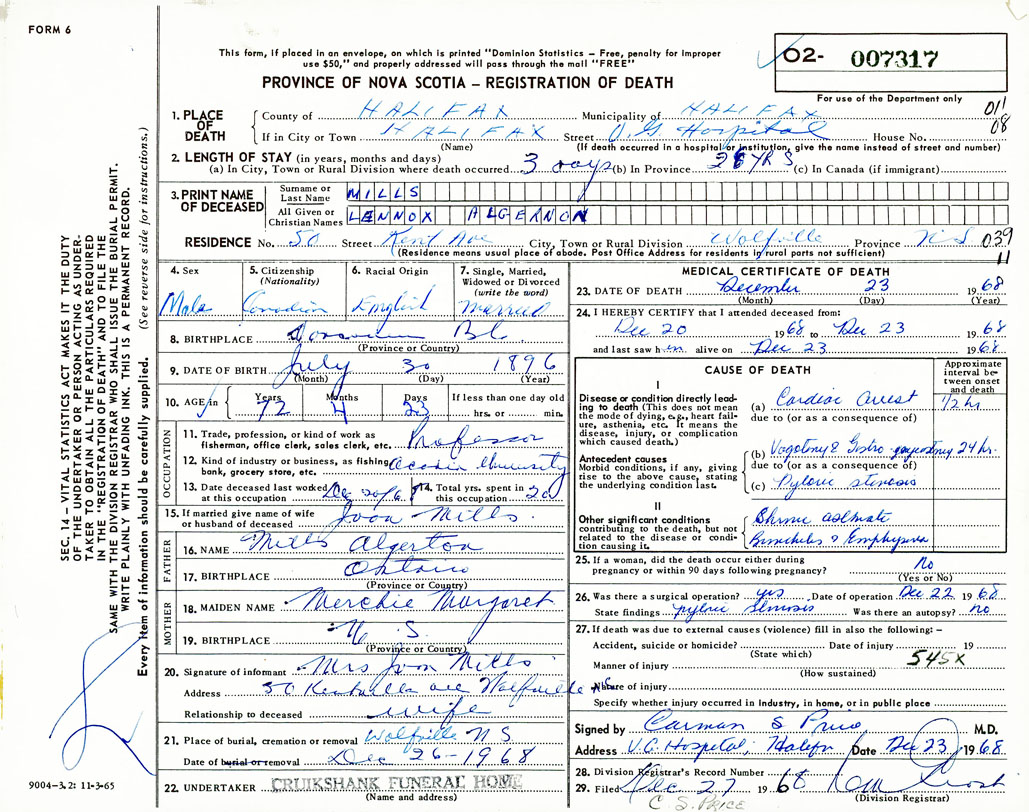 FORM 6
This form, if placed in an envelope, on which is printed "Dominion Statistics – Free, penalty for improper
use $50," and properly addressed will pass through the mail "FREE"
PROVINCE OF NOVA SCOTIA – REGISTRATION OF DEATH
02- 007317
For use of the Department only
011
08
1. PLACE OF DEATH
County of HALIFAX Municipality of HALIFAX
If in City or Town HALIFAX Street V.G Hospital House No.
(Name) (If death occurred in a hospital or institution, give the name instead of street and number)
2. LENGTH OF STAY (in years, months and days)
(a) In City, Town or Rural Division where death occurred 3 days (b) In Province 26 YRS (c) In Canada (if immigrant)
3. PRINT NAME OF DECEASED
Surname or Last Name MILLS
All Given or Christian Names LENNOX ALGERNON
RESIDENCE No. 50 Street Kent Ave City, Town or Rural Division Wolfville Province N S 039
11
(Residence means usual place of abode. Post Office Address for residents in rural parts not sufficient)
4. Sex Male
5. Citizenship (Nationality) Canadian
6. Racial Origin English
7. Single, Married, Widowed or Divorced (write the word) Married
8. BIRTHPLACE B.C.
(Province or Country)
9. DATE OF BIRTH July 30 1896
(Month) (Day) (Year)
10. AGE in Years 72 Months 4 Days 23 If less than one day old hrs. or min.
OCCUPATION
11. Trade, profession, or kind of work as fisherman, office clerk, sales clerk, etc. Professor
12. Kind of industry or business, as fishing, bank, grocery store, etc. Acadia University
13. Date deceased last worked at this occupation Dec 20/68 14. Total yrs. spent in this occupation 20
15. If married give name of wife or husband of deceased Joan Mills
FATHER
16. NAME Mills Algerton
17. BIRTHPLACE Ontario
(Province or Country)
MOTHER
18. MAIDEN NAME Merchie Margaret
19. BIRTHPLACE N.S.
(Province or Country)
20. Signature of informant Mrs Joan Mills
Address 50 Kentville ave Wolfville NS
Relationship to deceased wife
21. Place of burial, cremation or removal Wolfville N S
Date of burial or removal Dec 26-1968
22. UNDERTAKER CRUIKSHANK FUNERAL HOME
(Name and address)
MEDICAL CERTIFICATE OF DEATH
23. DATE OF DEATH December 23 1968
(Month) (Day) (Year)
24. I HEREBY CERTIFY that I attended deceased from:
Dec 20 1968 to Dec 23 1968
and last saw him alive on Dec 23 1968
CAUSE OF DEATH
Approximate interval between onset and death
I
Disease or condition directly leading to death (This does not mean the mode of dying, e.g., heart failure, asthenia, etc. It means the disease, injury, or complication which caused death.)
(a) Cardiac Arrest 1/2 hr.
due to (or as a consequence of)
Antecedent causes
Morbid conditions, if any, giving rise to the above cause, stating the underlying condition last.
(b) Vagotomy & Gastro- 24 hr.
due to (or as a consequence of)
(c) Pyloric stenosis
II
Other significant conditions
contributing to the death, but not related to the disease or condition causing it.
Bronchitis & Emphysema
25. If a woman, did the death occur either during pregnancy or within 90 days following pregnancy? No
(Yes or No)
26. Was there a surgical operation? yes Date of operation Dec 22 1968
State findings pyloric stenosis Was there an autopsy? no
27. If death was due to external causes (violence) fill in also the following: –
Accident, suicide or homicide? Date of injury 19
(State which)
545X
Manner of injury
(How sustained)
Nature of injury
Specify whether injury occurred in Industry, in home, or in public place
Signed by Carman S Price M.D.
Address V.G. Hospital. Halifax Date Dec 23 1968
28. Division Registrar's Record Number
29. Filed Dec 27 1968
(Division Registrar)
C S. PRICE
SEC. 14 – VITAL STATISTICS ACT MAKES IT THE DUTY
OF THE UNDERTAKER OR PERSON ACTING AS UNDER-
TAKER TO OBTAIN ALL THE PARTICULARS REQUIRED
IN THE "REGISTRATION OF DEATH" AND TO FILE THE
SAME WITH THE DIVISION REGISTRAR WHO SHALL ISSUE THE BURIAL PERMIT.
WRITE PLAINLY WITH UNFADING INK. THIS IS A PERMANENT RECORD.
Every item of information should be carefully supplied. (See reverse side for instructions.)
9004-3.2: 11-3-65